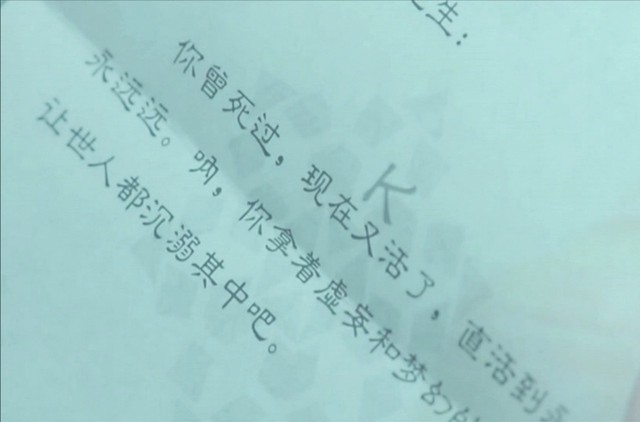 生：
你曾死过，现在又活了，直活到
永远远。呐，你拿着虚妄和梦幻的
让世人都沉溺其中吧。
K